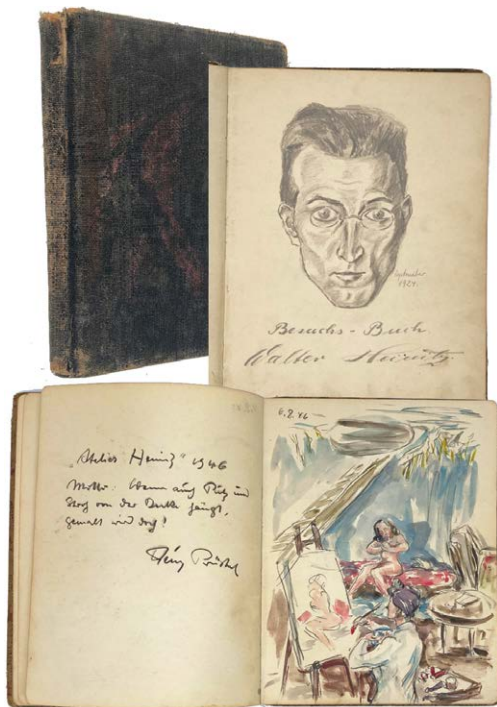 September
1921.
Besuchs-Buch
Walter
"Atelier Heinitz" 1946
Motto: Wenn auch Putz und
von der Decke hängt,
gemalt wird doch!
6.2.46